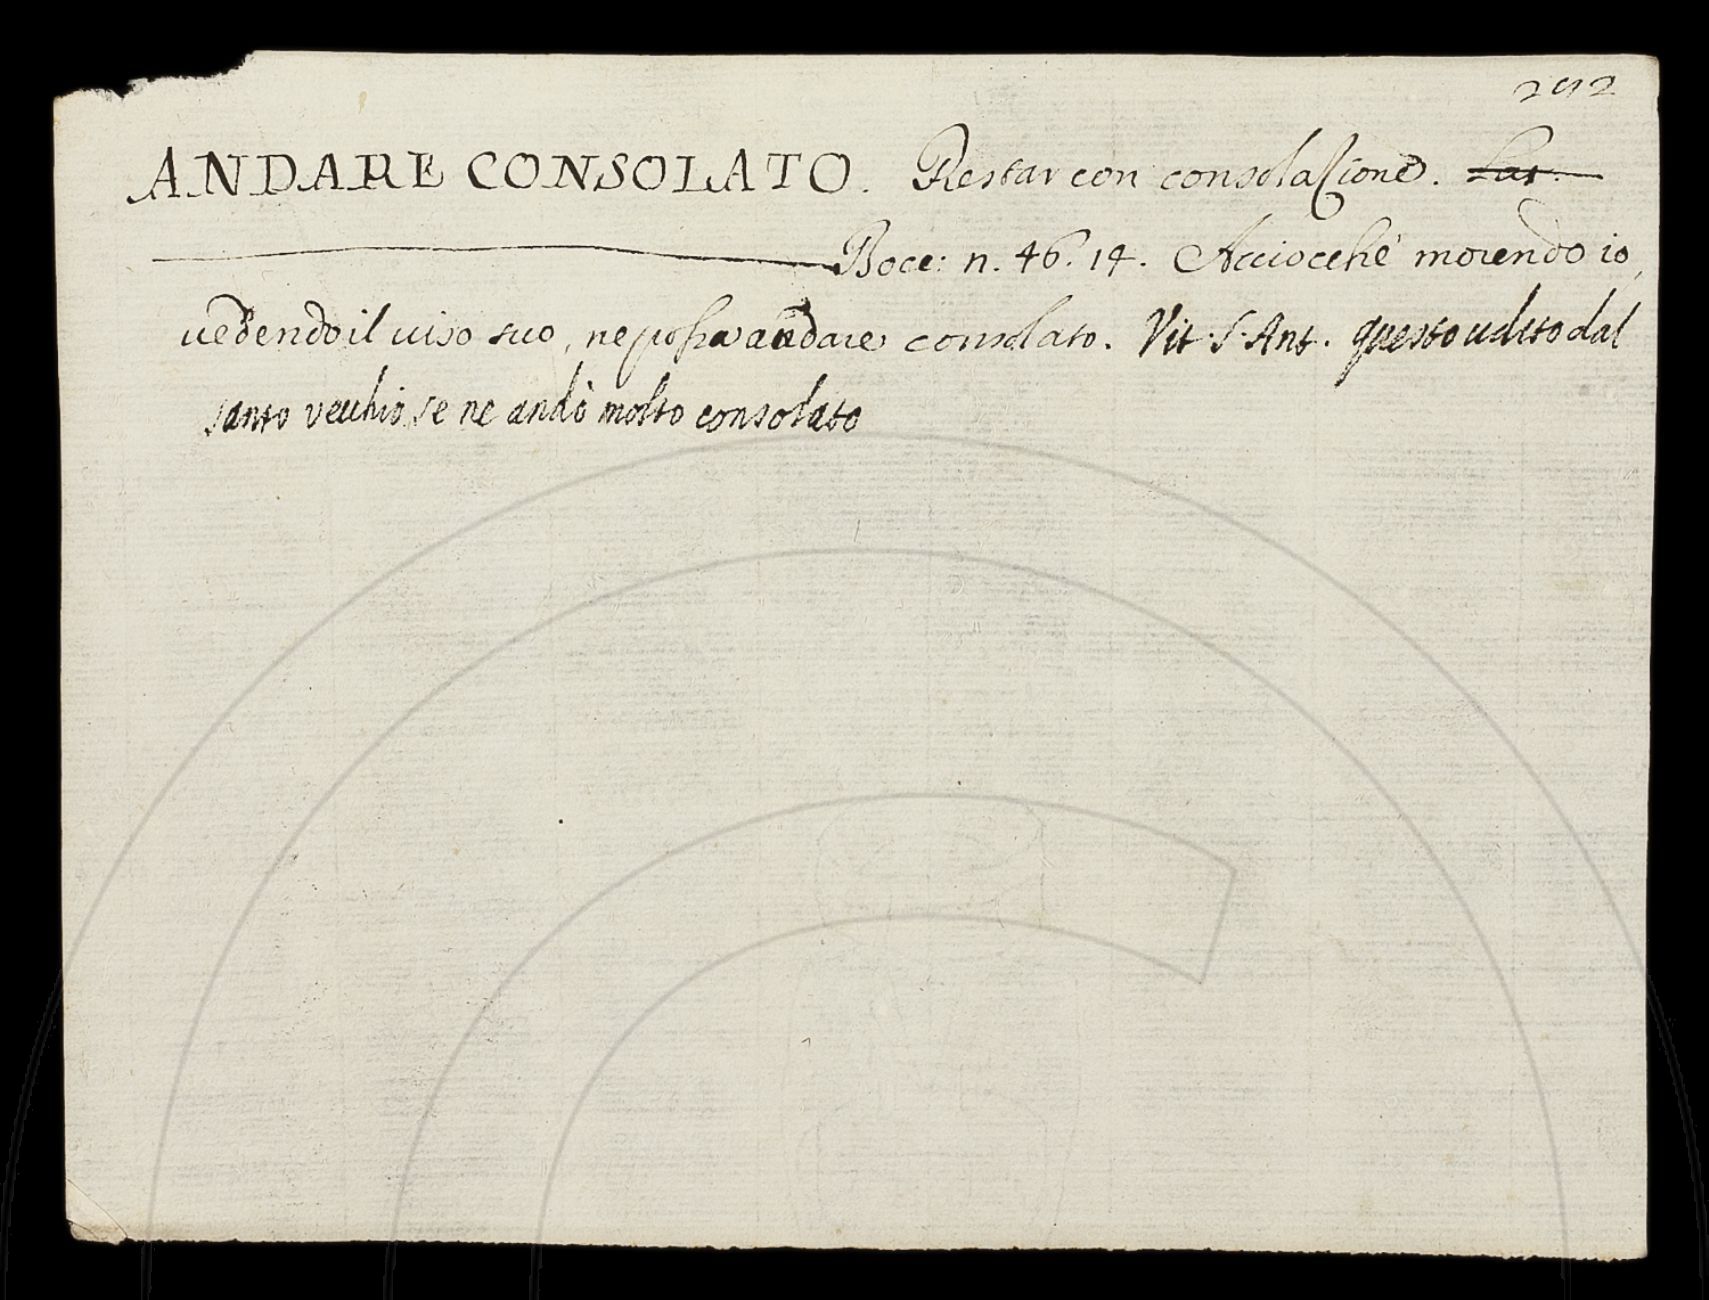 292
ANDARE CONSOLATO. Restar con consolazione. Lat.
Bocc: n. 46. 14. Acciocchè morendo io,
vedendo il viso suo, ne possa andare consolato. Vit. S. Ant. questo udito dal
santo vecchio se ne andò molto consolato